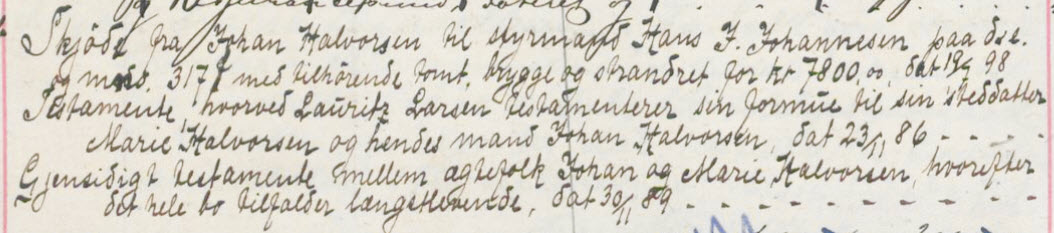 Skjøde fra Johan Halvorsen til styrmand Hans J. Johannesen paa dse.
og mno. 317 f med tilhörende tomt, brygge og strandret for kr 7800,00, dat 19/4 98
Testamente, hvorved Lauritz Larsen testamenterer sin formue til sin steddatter
Marie Halvorsen og hendes mand Johan Halvorsen, dat 23/11 86 - - - - -
Gjensidigt testamente mellem ægtefolk Johan og Marie Halvorsen, hvorefter
det hele bo tilfalder længstlevende, dat 30/11 89 - - - - - - - - -